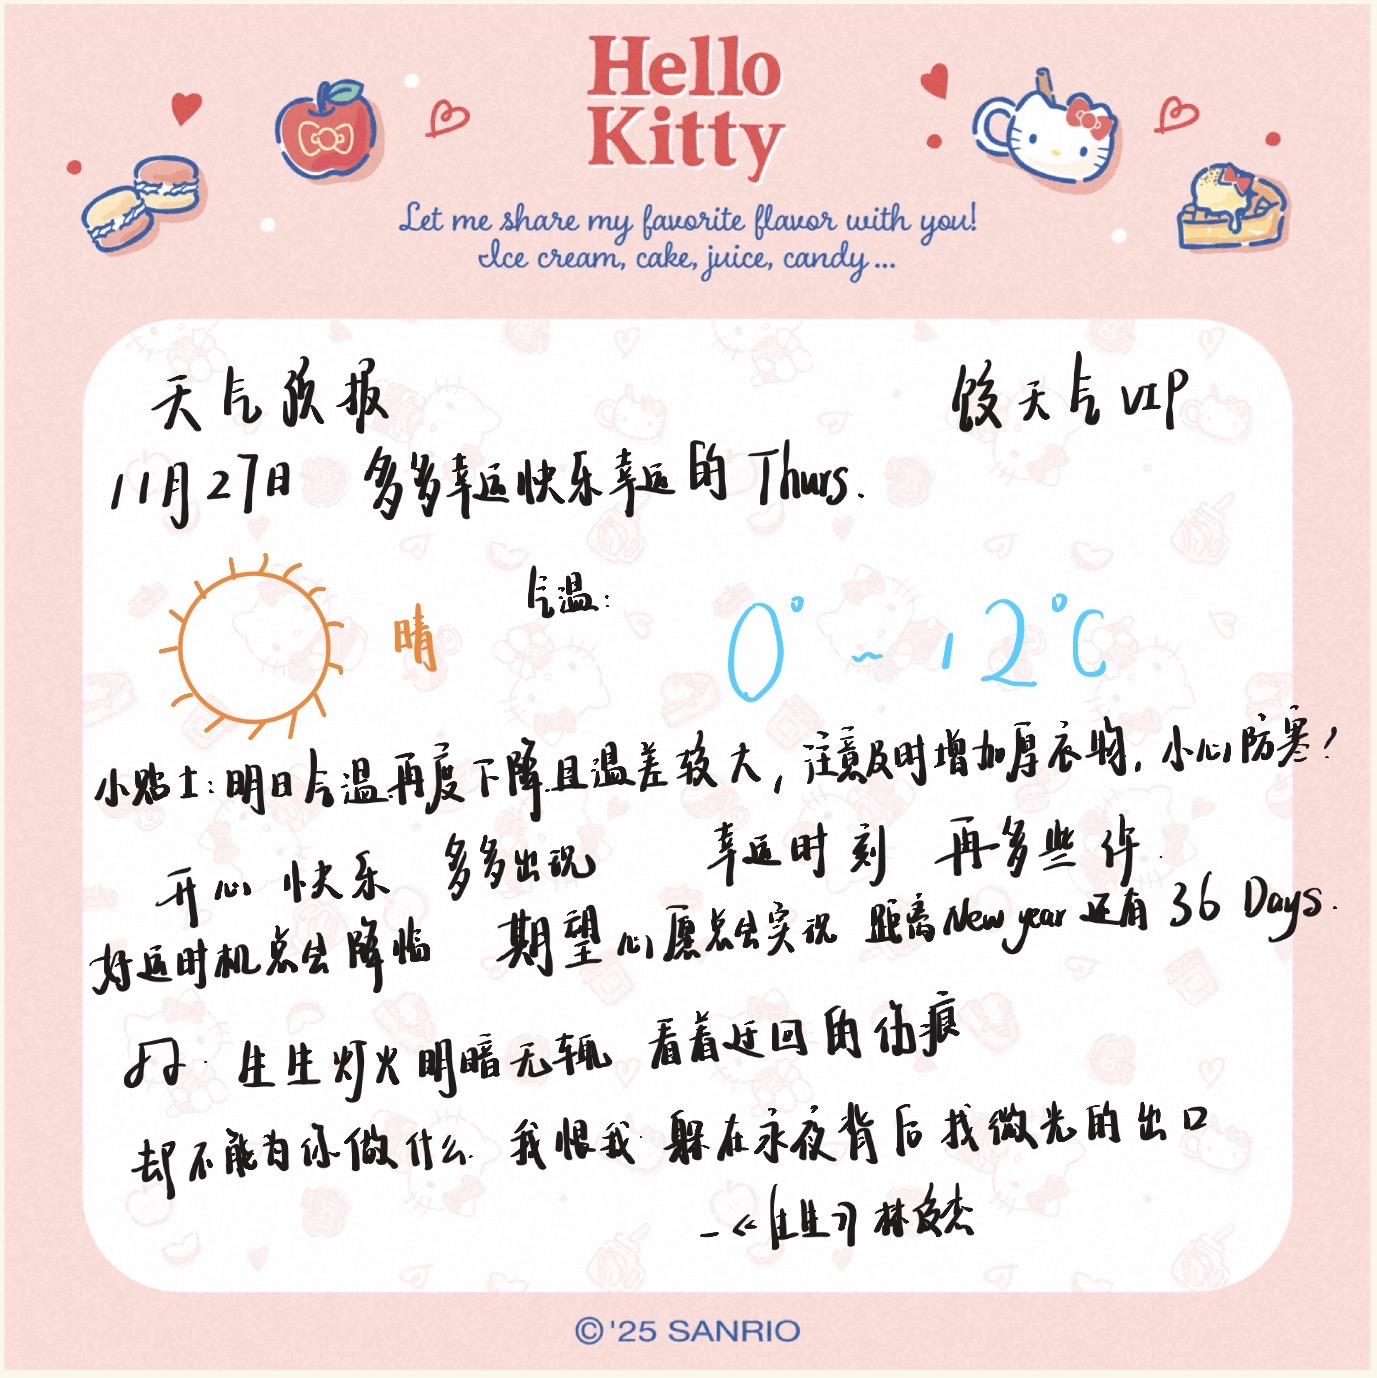 Hello
Kitty
Let me share my favorite flavor with you!
Ice cream, cake, juice, candy...
天气预报 饺天气 VIP
11月27日 多多幸运快乐幸运的 Thurs.
晴 气温: 0°~12℃
小贴士:明日气温再度下降且温差较大,注意及时增加厚衣物,小心防寒!
开心快乐 多多出现 幸运时刻 再多些许
好运时机总会降临 期望心愿总会实现 距离New year还有36 Days.
生生灯火明暗无辄 看着迂回的伤痕
却不能为你做什么 我恨我 躲在永夜背后找微光的出口
—《生生》林俊杰
©'25 SANRIO